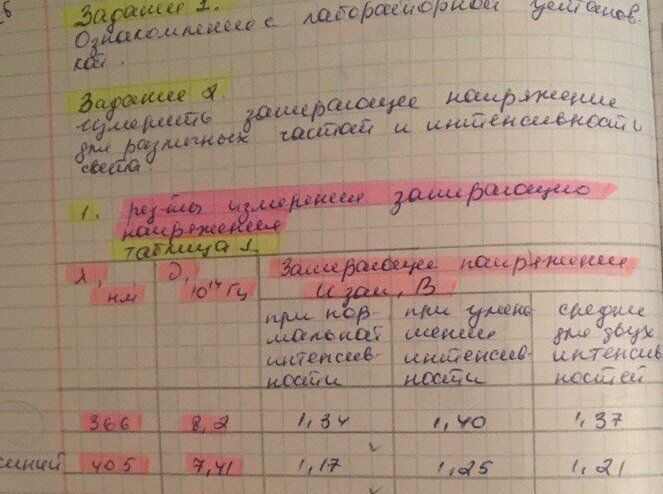 Задание 1.
Ознакомление с лабораторной установ-
кой.
Задание 2.
Измерить запирающее напряжение
для различных частот и интенсивности
света.
1. рез-ты измерения запирающего
напряжения
таблица 1.
λ, нм | ν, 10¹⁴ Гц | Запирающее напряжение
Uзап, В
при нор- | при умень- | среднее
мальной | шении | для двух
интенсив- | интенсив- | интенсив
ности | ности | ностей
366 | 8,2 | 1,34 | 1,40 | 1,37
синий 405 | 7,41 | 1,17 | 1,25 | 1,21